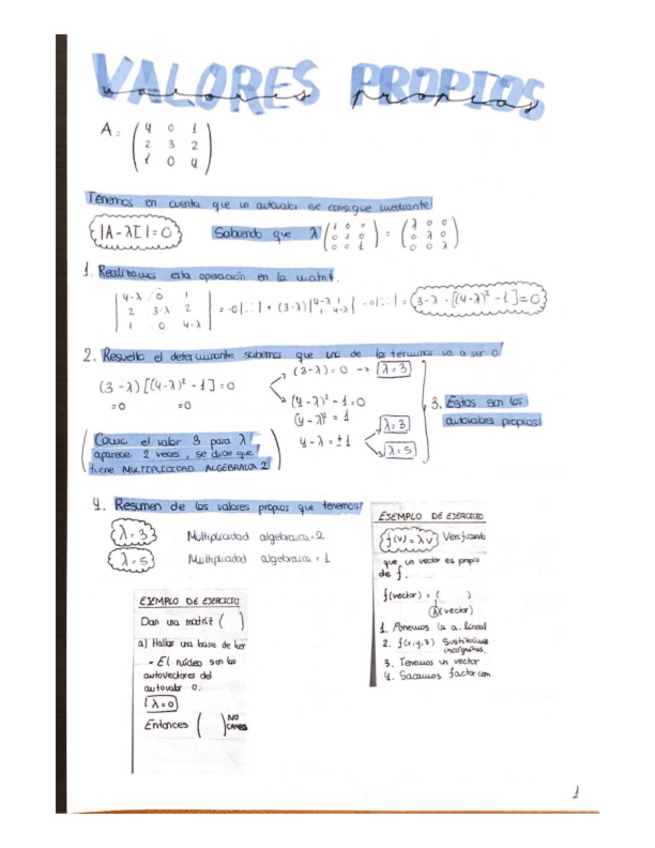 VALORES PROPIOS
valores propios
A = ( 4 0 1
2 3 2
1 0 4 )
Tenemos en cuenta que un autovalor se consigue mediante
|A-λI|=0 Sabiendo que λ ( 1 0 0 / 0 1 0 / 0 0 1 ) = ( λ 0 0 / 0 λ 0 / 0 0 λ )
1. Realizamos esta operación en la matriz.
| 4-λ 0 1 / 2 3-λ 2 / 1 0 4-λ | = -0|∴| + (3-λ)| 4-λ 1 / 1 4-λ | -0|∴| = (3-λ · [(4-λ)² - 1] = 0)
2. Resuelto el determinante sabemos que uno de los términos va a ser 0
(3-λ)[(4-λ)² - 1] = 0
=0 =0
(3-λ)=0 → λ=3
(4-λ)² - 1=0
(4-λ)² = 1
4-λ = ±1
λ=3
λ=5
3. Estos son los
autovalores propios
Como el valor 3 para λ
aparece 2 veces, se dice que
tiene MULTIPLICIDAD ALGEBRAICA 2
4. Resumen de los valores propios que tenemos
λ=3 Multiplicidad algebraica=2
λ=5 Multiplicidad algebraica=1
EJEMPLO DE EJERCICIO
Dan una matriz ( )
a) Hallar una base de ker
- El núcleo son los
autovectores del
autovalor 0.
(λ=0)
Entonces ( ) NO
EJEMPLO DE EJERCICIO
f(v)=λv Verificando
que un vector es propio
de f.
f(vector) = ( )
λ(vector)
1. Ponemos la a. lineal
2. f(x,y,z) Sustituimos
incógnitas.
3. Tenemos un vector
4. Sacamos factor com
1